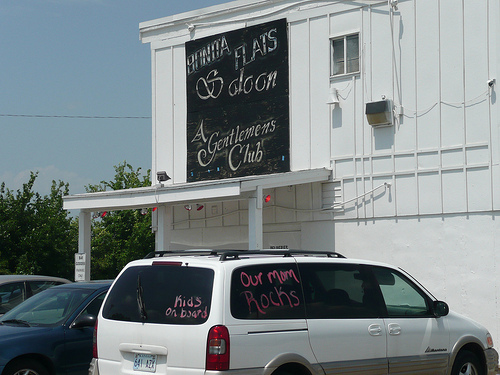 BONITA FLATS
Saloon
A
Gentlemens
Club
Kids
on board
Our mom
Rocks